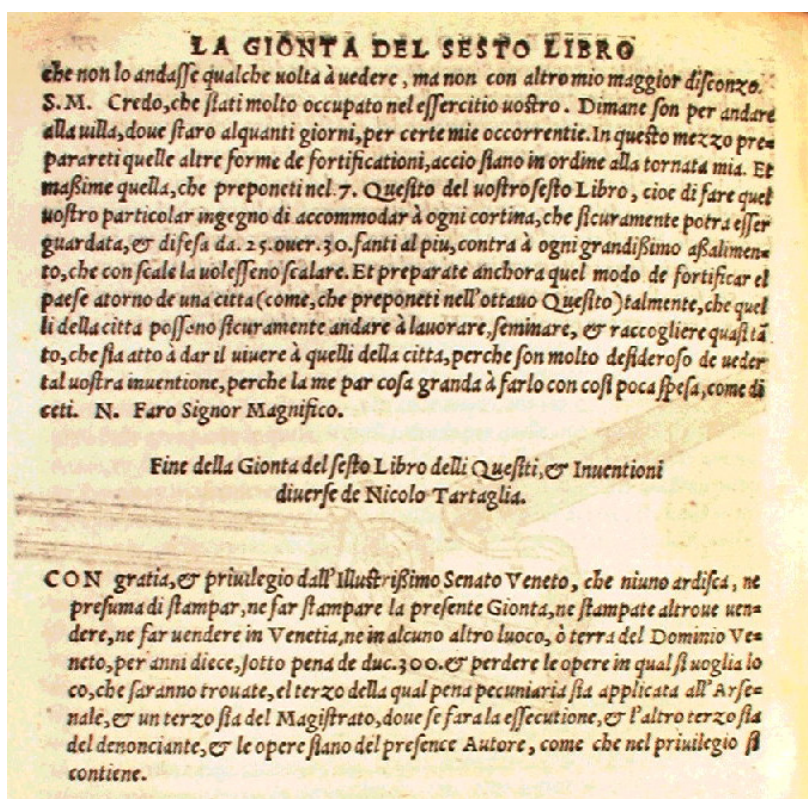 LA GIONTA DEL SESTO LIBRO
che non lo andasse qualche uolta à uedere, ma non con altro mio maggior disconzo.
S. M. Credo, che stati molto occupato nel essercitio uostro. Dimane son per andare
alla uilla, doue staro alquanti giorni, per certe mie occorrentie. In questo mezzo pre-
parareti quelle altre forme de fortificationi, accio siano in ordine alla tornata mia. Et
maßime quella, che preponeti nel. 7. Quesito del uostro sesto Libro, cioe di fare quel
uostro particolar ingegno di accommodar à ogni cortina, che sicuramente potra esser
guardata, & difesa da. 25. ouer. 30. fanti al piu, contra à ogni grandißimo aßalimen=
to, che con scale la uolesseno scalare. Et preparate anchora quel modo de fortificar el
paese atorno de una citta (come, che preponeti nell'ottauo Quesito) talmente, che quel
li della citta possono sicuramente andare à lauorare, seminare, & raccogliere quasi tā
to, che sia atto à dar il uiuere à quelli della citta, perche son molto desideroso de ueder
tal uostra inuentione, perche la me par cosa granda à farlo con cosi poca spesa, come di
ceti. N. Faro Signor Magnifico.
Fine della Gionta del sesto Libro delli Quesiti, & Inuentioni
diuerse de Nicolo Tartaglia.
CON gratia, & priuilegio dall'Illustrißimo Senato Veneto, che niuno ardisca, ne
presuma di stampar, ne far stampare la presente Gionta, ne stampate altroue uen=
dere, ne far uendere in Venetia, ne in alcuno altro luoco, ò terra del Dominio Ve=
neto, per anni diece, sotto pena de duc. 300. & perdere le opere in qual si uoglia lo
co, che saranno trouate, el terzo della qual pena pecuniaria sia applicata all'Arse=
nale, & un terzo sia del Magistrato, doue se fara la essecutione, & l'altro terzo sia
del denonciante, & le opere siano del presence Autore, come che nel priuilegio si
contiene.